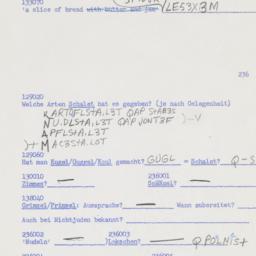 133070
'a slice of bread with butter and jam' /LES3X3M
236
129020
Welche Arten Schalet hat es gegeben? (je nach Gelegenheit)
KARTOFLSTA,L3T QAP STAB3S
NU.DLSTA,L3T QAP JONT3F )-V
APFLSTA,L3T
)+ MAC3STA.LOT
129060
Hat man Kugel/Guggel/Koul gemacht? GUGL = Schalet? Q-S
130010 236001
Zimmes? — Schükel? —
138040
Grimsel/Primsel: Aussprache? — Wann zubereitet?
Auch bei Nichtjuden bekannt?
236002 236003
'Nudeln' — Lokschen? — Q POLNIST